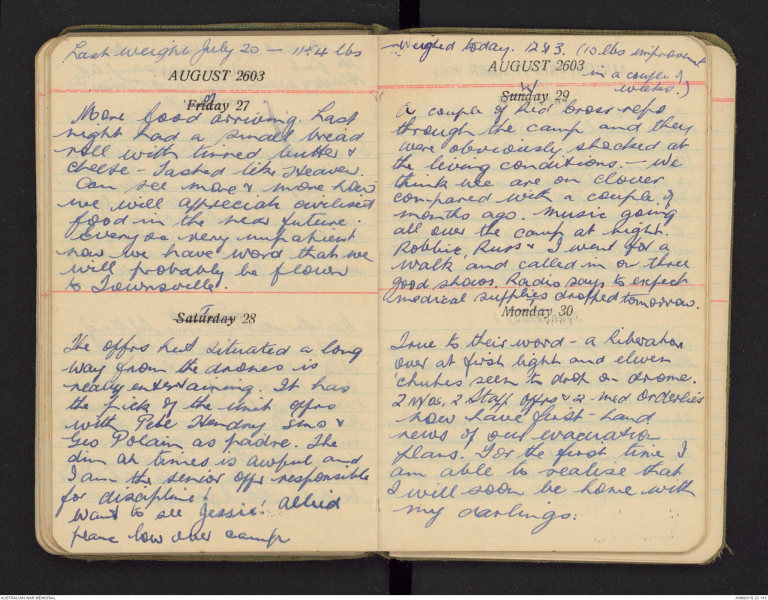 Last weight July 20 – 115.4 lbs
AUGUST 2603
Friday 27
M
More food arriving. Last
night had a small bread
roll with tinned butter &
cheese – Tasted like Heaven.
Can see more & more how
we will appreciate civilised
food in the near future.
Everyone very impatient
now we have word that we
will probably be flown
to Townsville.
Saturday 28
T
The offrs hut situated a long
way from the drones is
really entertaining. It has
the pick of the unit offrs
with Pete Hendry Sms &
Geo Polain as padre. The
din at times is awful and
I am the senior offr responsible
for discipline!
Want to see Jessie! Allied
plane low over camp
weighed today. 128.3. (10 lbs improvement
in a couple of
weeks.)
AUGUST 2603
W
Sunday 29
A couple of Red Cross reps
through the camp and they
were obviously shocked at
the living conditions. – We
think we are on clover
compared with a couple of
months ago. Music going
all over the camp at night.
Robbie, Russ & I went for a
walk and called in on three
good shows. Radio says to expect
medical supplies dropped tomorrow.
Monday 30
True to their word – a Liberator
over at first light and eleven
'chutes seen to drop on drome.
2 MOs, 2 Staff offrs & 2 med orderlies
now have first-hand
news of our evacuation
plans. For the first time I
am able to realise that
I will soon be home with
my darlings.
AUSTRALIAN WAR MEMORIAL